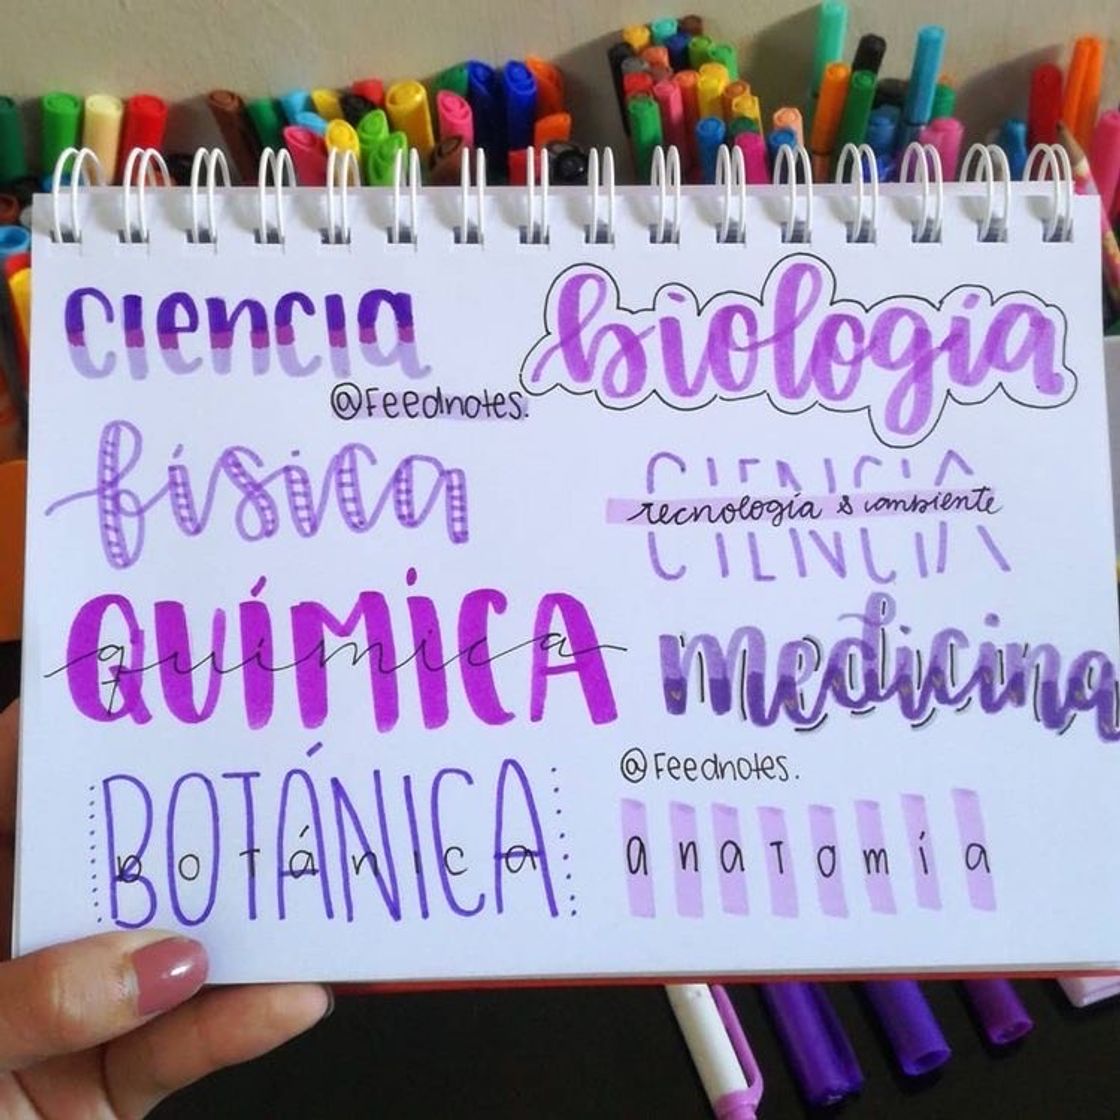 ciencia
biología
@Feednotes.
física
CIENCIA
tecnología & ambiente
CIENCIA
QUÍMICA
química
medicina
BOTÁNICA
botánica
@Feednotes.
anatomía